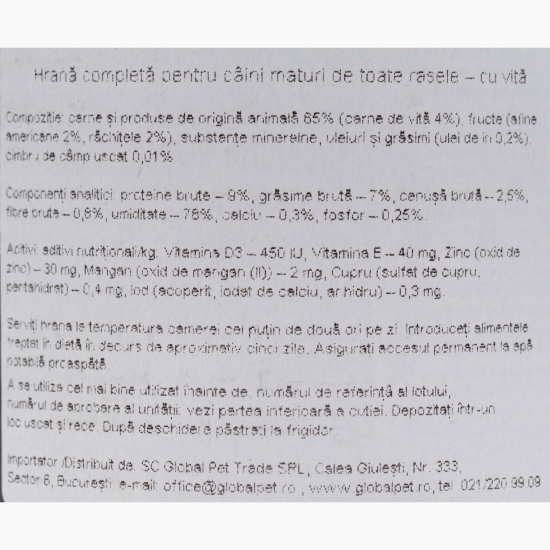 Hrană completă pentru câini maturi de toate rasele – cu vită
Compoziție: carne și produse de origină animală 65% (carne de vită 4%), fructe (afine
americane 2%, răchițele 2%), substanțe minerale, uleiuri și grăsimi (ulei de in 0,2%),
cimbru de câmp uscat 0,01%.
Componenți analitici: proteine brute – 9%, grăsime brută – 7%, cenușă brută – 2,5%,
fibre brute – 0,8%, umiditate – 78%, calciu – 0,3%, fosfor – 0,25%.
Aditivi: aditivi nutriționali/kg: Vitamina D3 – 450 IU, Vitamina E – 40 mg, Zinc (oxid de
zinc) – 30 mg, Mangan (oxid de mangan (II)) – 2 mg, Cupru (sulfat de cupru,
pentahidrat) – 0,4 mg, Iod (acoperit, iodat de calciu, anhidru) – 0,3 mg.
Serviți hrana la temperatura camerei cel puțin de două ori pe zi. Introduceți alimentele
treptat în dietă în decurs de aproximativ cinci zile. Asigurați accesul permanent la apă
potabilă proaspătă.
A se utiliza cel mai bine utilizat înainte de, numărul de referință al lotului,
numărul de aprobare al unității: vezi partea inferioară a cutiei. Depozitați într-un
loc uscat și rece. După deschidere păstrați la frigider.
Importator /Distribuit de: SC Global Pet Trade SRL, Calea Giulești, Nr. 333,
Sector 6, București, e-mail: office@globalpet.ro , www.globalpet.ro, tel: 021/220 99 09